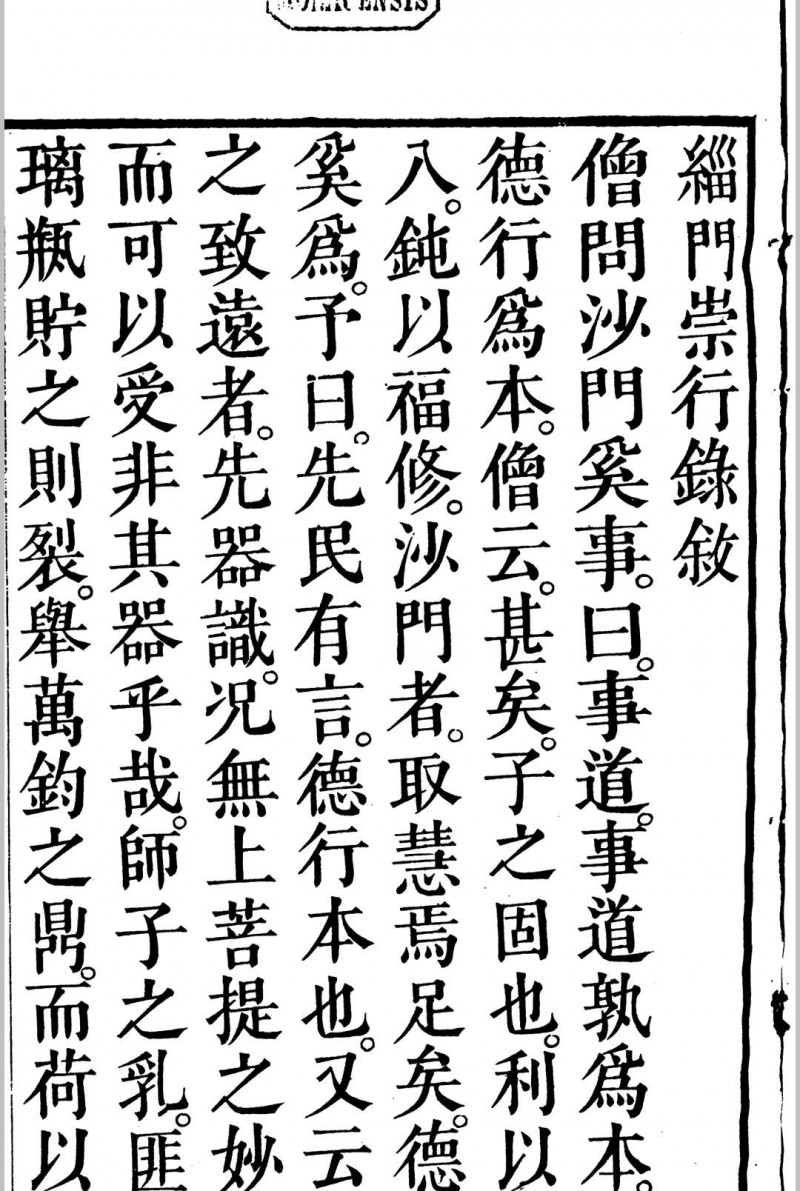 緇門崇行錄敘
僧問沙門奚事。曰。事道。事道孰爲本。
德行爲本。僧云。甚矣。子之固也。利以
八。鈍以福修。沙門者。取慧焉足矣。德
奚爲。予曰。先民有言。德行本也。又云
之致遠者。先器識。况無上菩提之妙
而可以受非其器乎哉。師子之乳。匪
璃瓶貯之則裂。舉萬鈞之鼎。而荷以